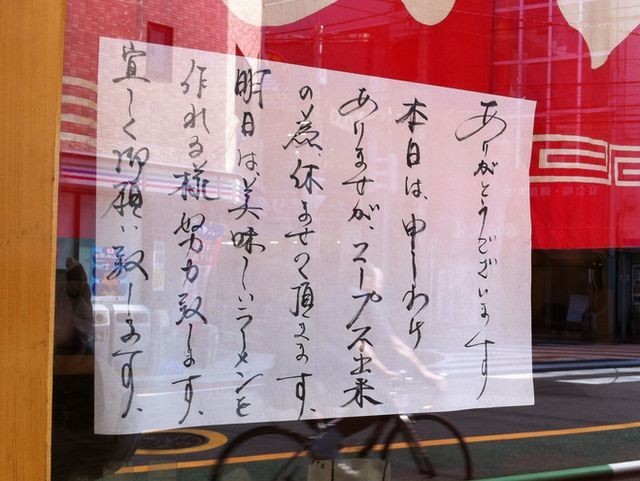 ありがとうございます
本日は、申しわけ
ありませんが、スープ不出来
の為休ませて頂きます。
明日は、美味しいラーメンを
作れる様努力致します。
宜しく御願い致します。